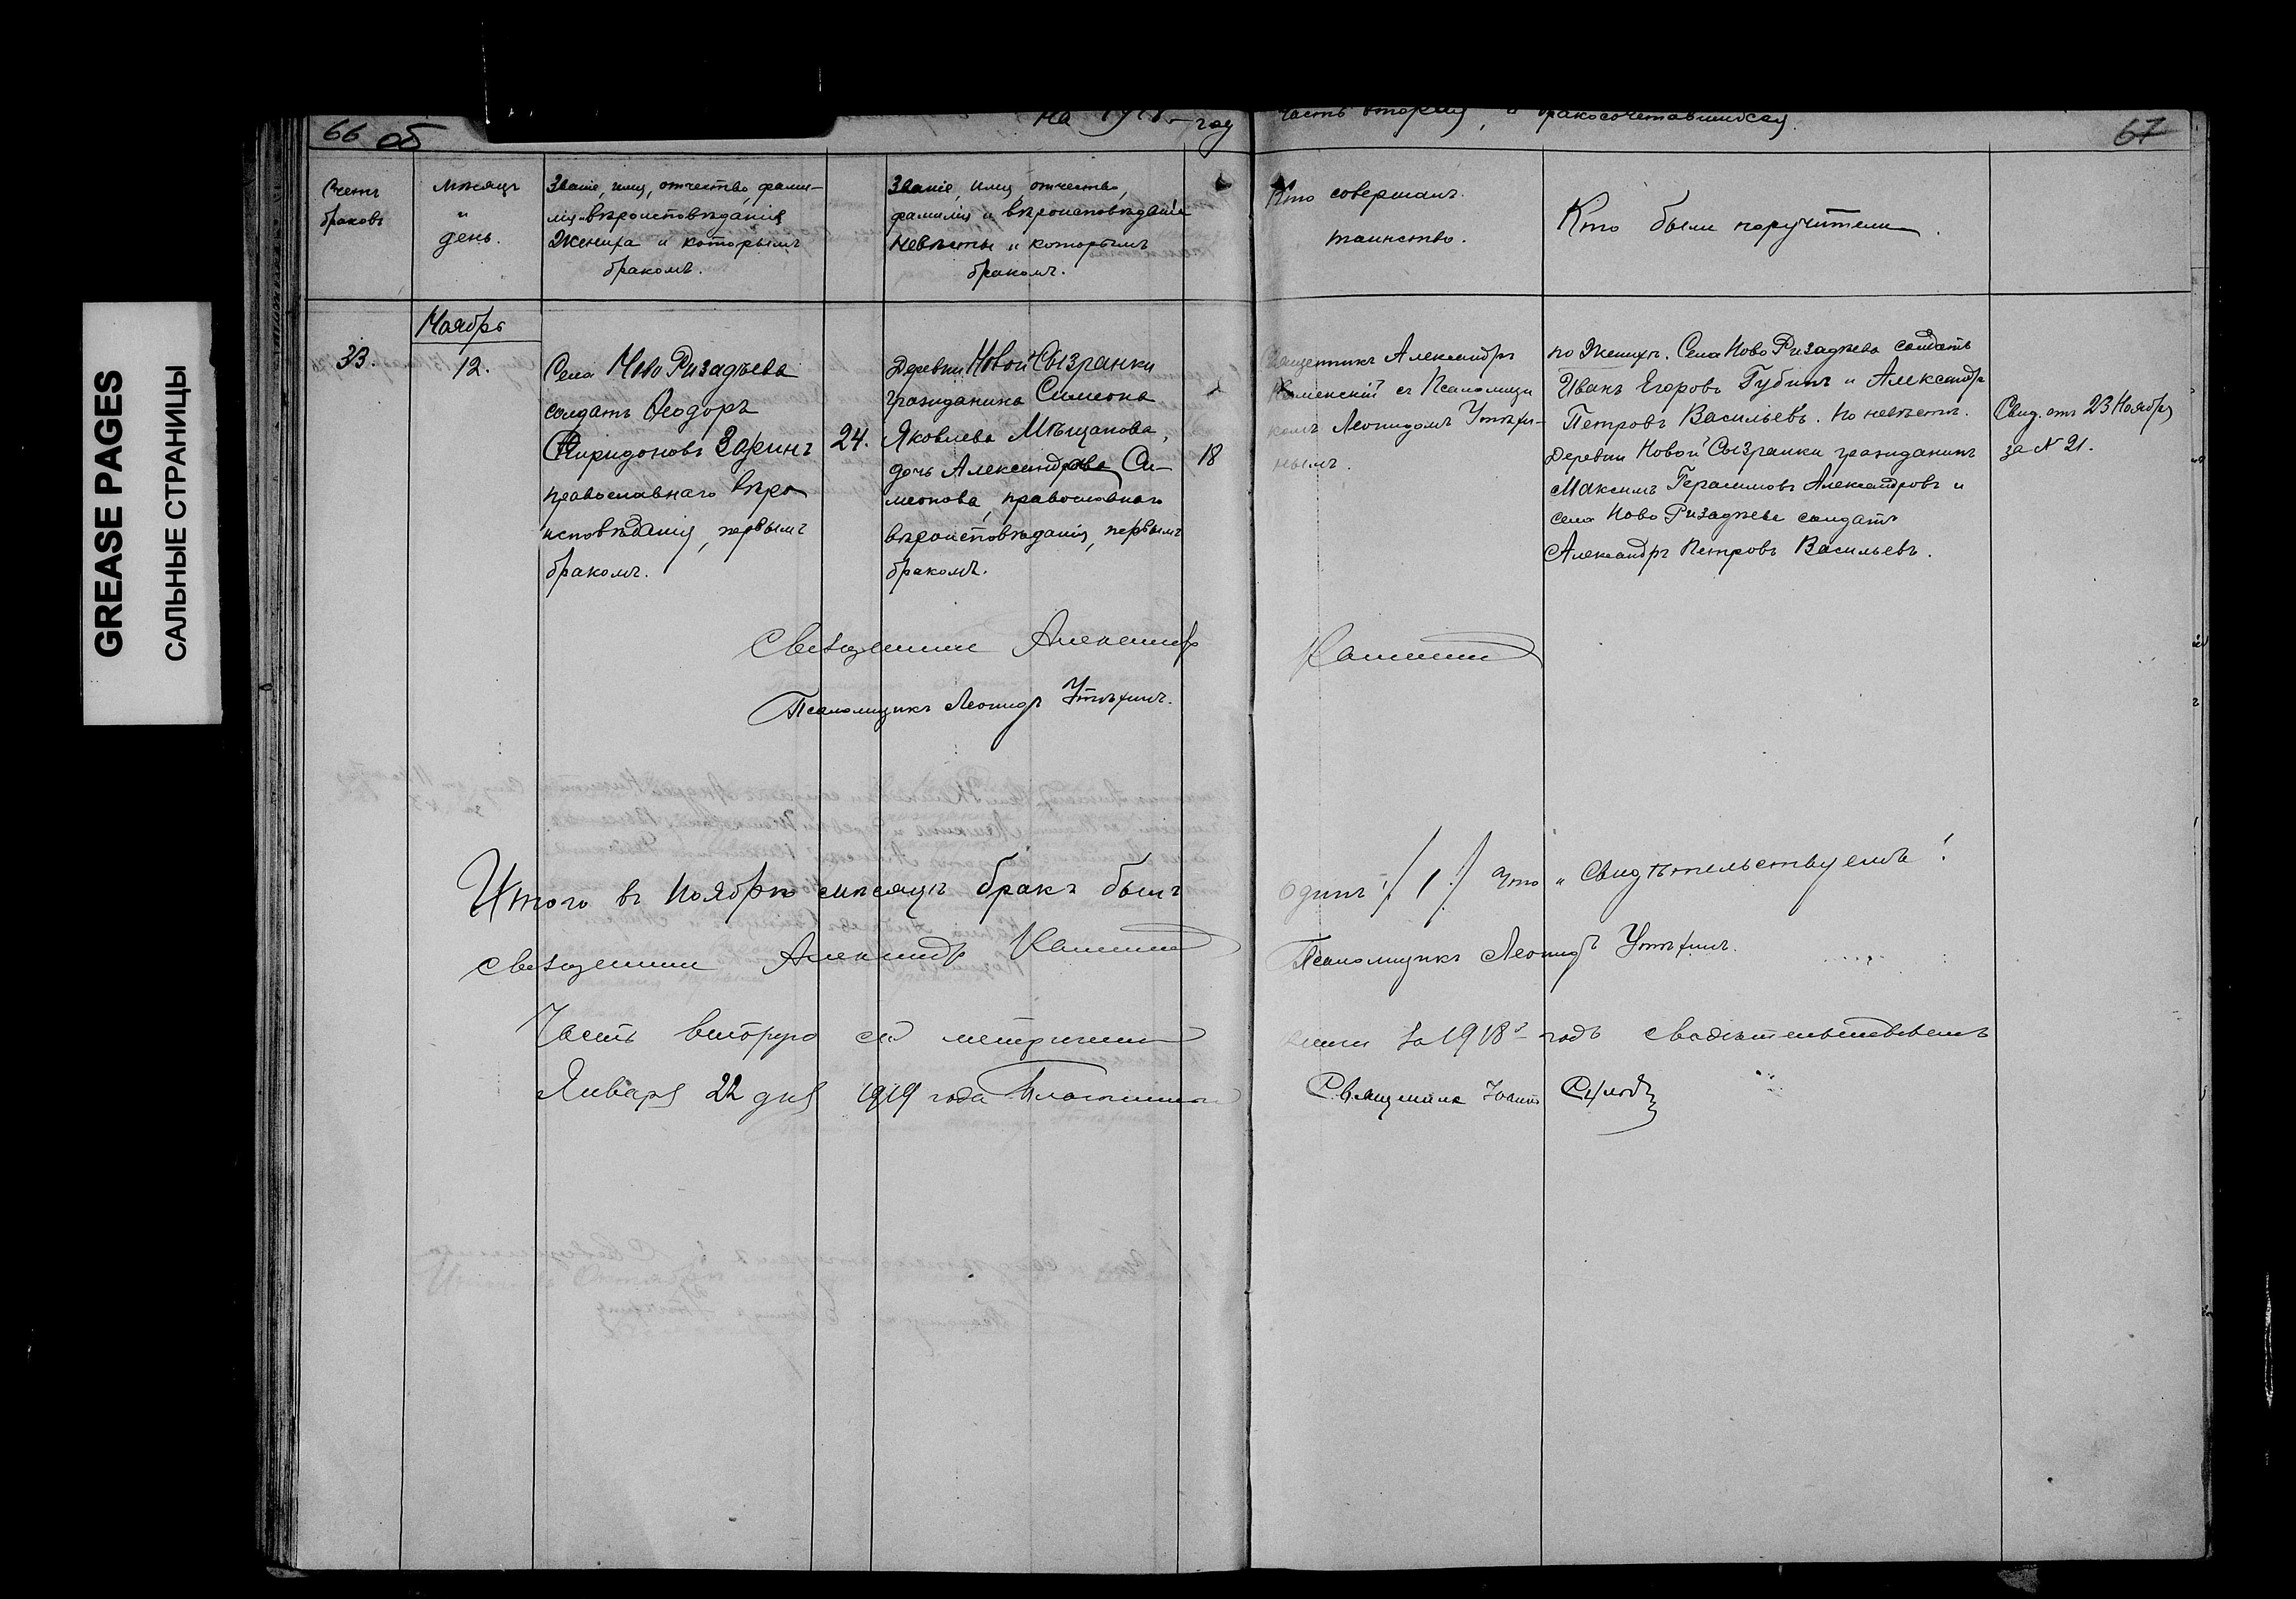 GREASE PAGES
САЛЬНЫЕ СТРАНИЦЫ
66 об
на год
часть вторая, о бракосочетавшихся.
67
Счетъ
браковъ
Мѣсяцъ
и
день.
Званіе, имя, отчество, фами-
лія вѣроисповѣданія
Жениха и которымъ
бракомъ.
Званіе, имя, отчество,
фамилія и вѣроисповѣданіе
Невѣсты и которымъ
бракомъ.
Кто совершалъ
таинство.
Кто были поручители.
Ноябрь
33.
12.
Села Ново Ризадѣева
солдатъ Ѳеодоръ
Спиридоновъ Заринъ
православнаго вѣро
исповѣданія, первымъ
бракомъ.
24.
Деревни Новой Сызранки
гражданина Симеона
Яковлева Мѣщанова,
дочь Александрова Си-
меонова, православнаго
вѣроисповѣданія, первымъ
бракомъ.
18
Священникъ Александръ
Каменскій съ Псаломщи
комъ Леонидомъ Утѣхи-
нымъ.
по Женихѣ. Села Ново Ризадѣева солдатъ
Иванъ Егоровъ Губинъ и Александръ
Петровъ Васильевъ. по невѣстѣ.
Деревни Новой Сызранки гражданинъ
Максимъ Герасимовъ Александровъ и
села Ново Ризадѣева солдатъ
Александръ Петровъ Васильевъ.
Свид. отъ 23 Ноября
за № 21.
Священник Александр
Каменский
Псаломщикъ Леонидъ Утѣхинъ.
Итого въ Ноябрѣ мѣсяцѣ бракъ былъ
одинъ /1/ Что и свидѣтельствуемъ!
Священник Александр Каменский
Псаломщикъ Леонидъ Утѣхинъ.
Часть вторую сей метрической
книги за 1918й годъ свидѣтельствовалъ
Января 22 дня 1919 года Благочинный
Священникъ Іоаннъ